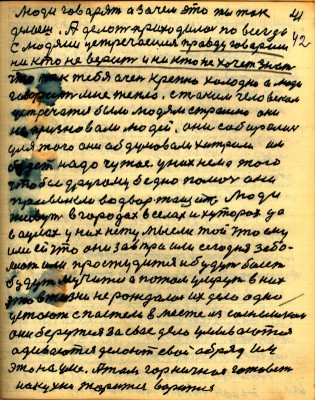 люди говорят а зачем это ты так 41
делаеш. А делот приходилос по всюдь 42
с людями устречатися правду говорили
ни кто не верит и ни кто не хочет знат
что так тебя очен крепко холодно а люди
говорит мне тепло. с таким человеком
устречатся было людям страшно они
не признавали людей. они собиралис
для того они обдумовали хитрили им
будет надо чужое. у них нема того
чтобы другому бедно помоч они
привыкли во двор тащить. Люди
живут в городах в селах и хуторах да
в аулах у них нету мысли той что ему
или ей что они завтра или сегодня забо
леют или простудится и будут болет
будут мучится а потом умрут в них
это в жизни не рождалос их дело одно
устают с постели в месте из солнышком
они берутся за свае дело умываются
одеваются делают свой обряд им
это на уме. А там горничная готовит
на кухне жарится варится